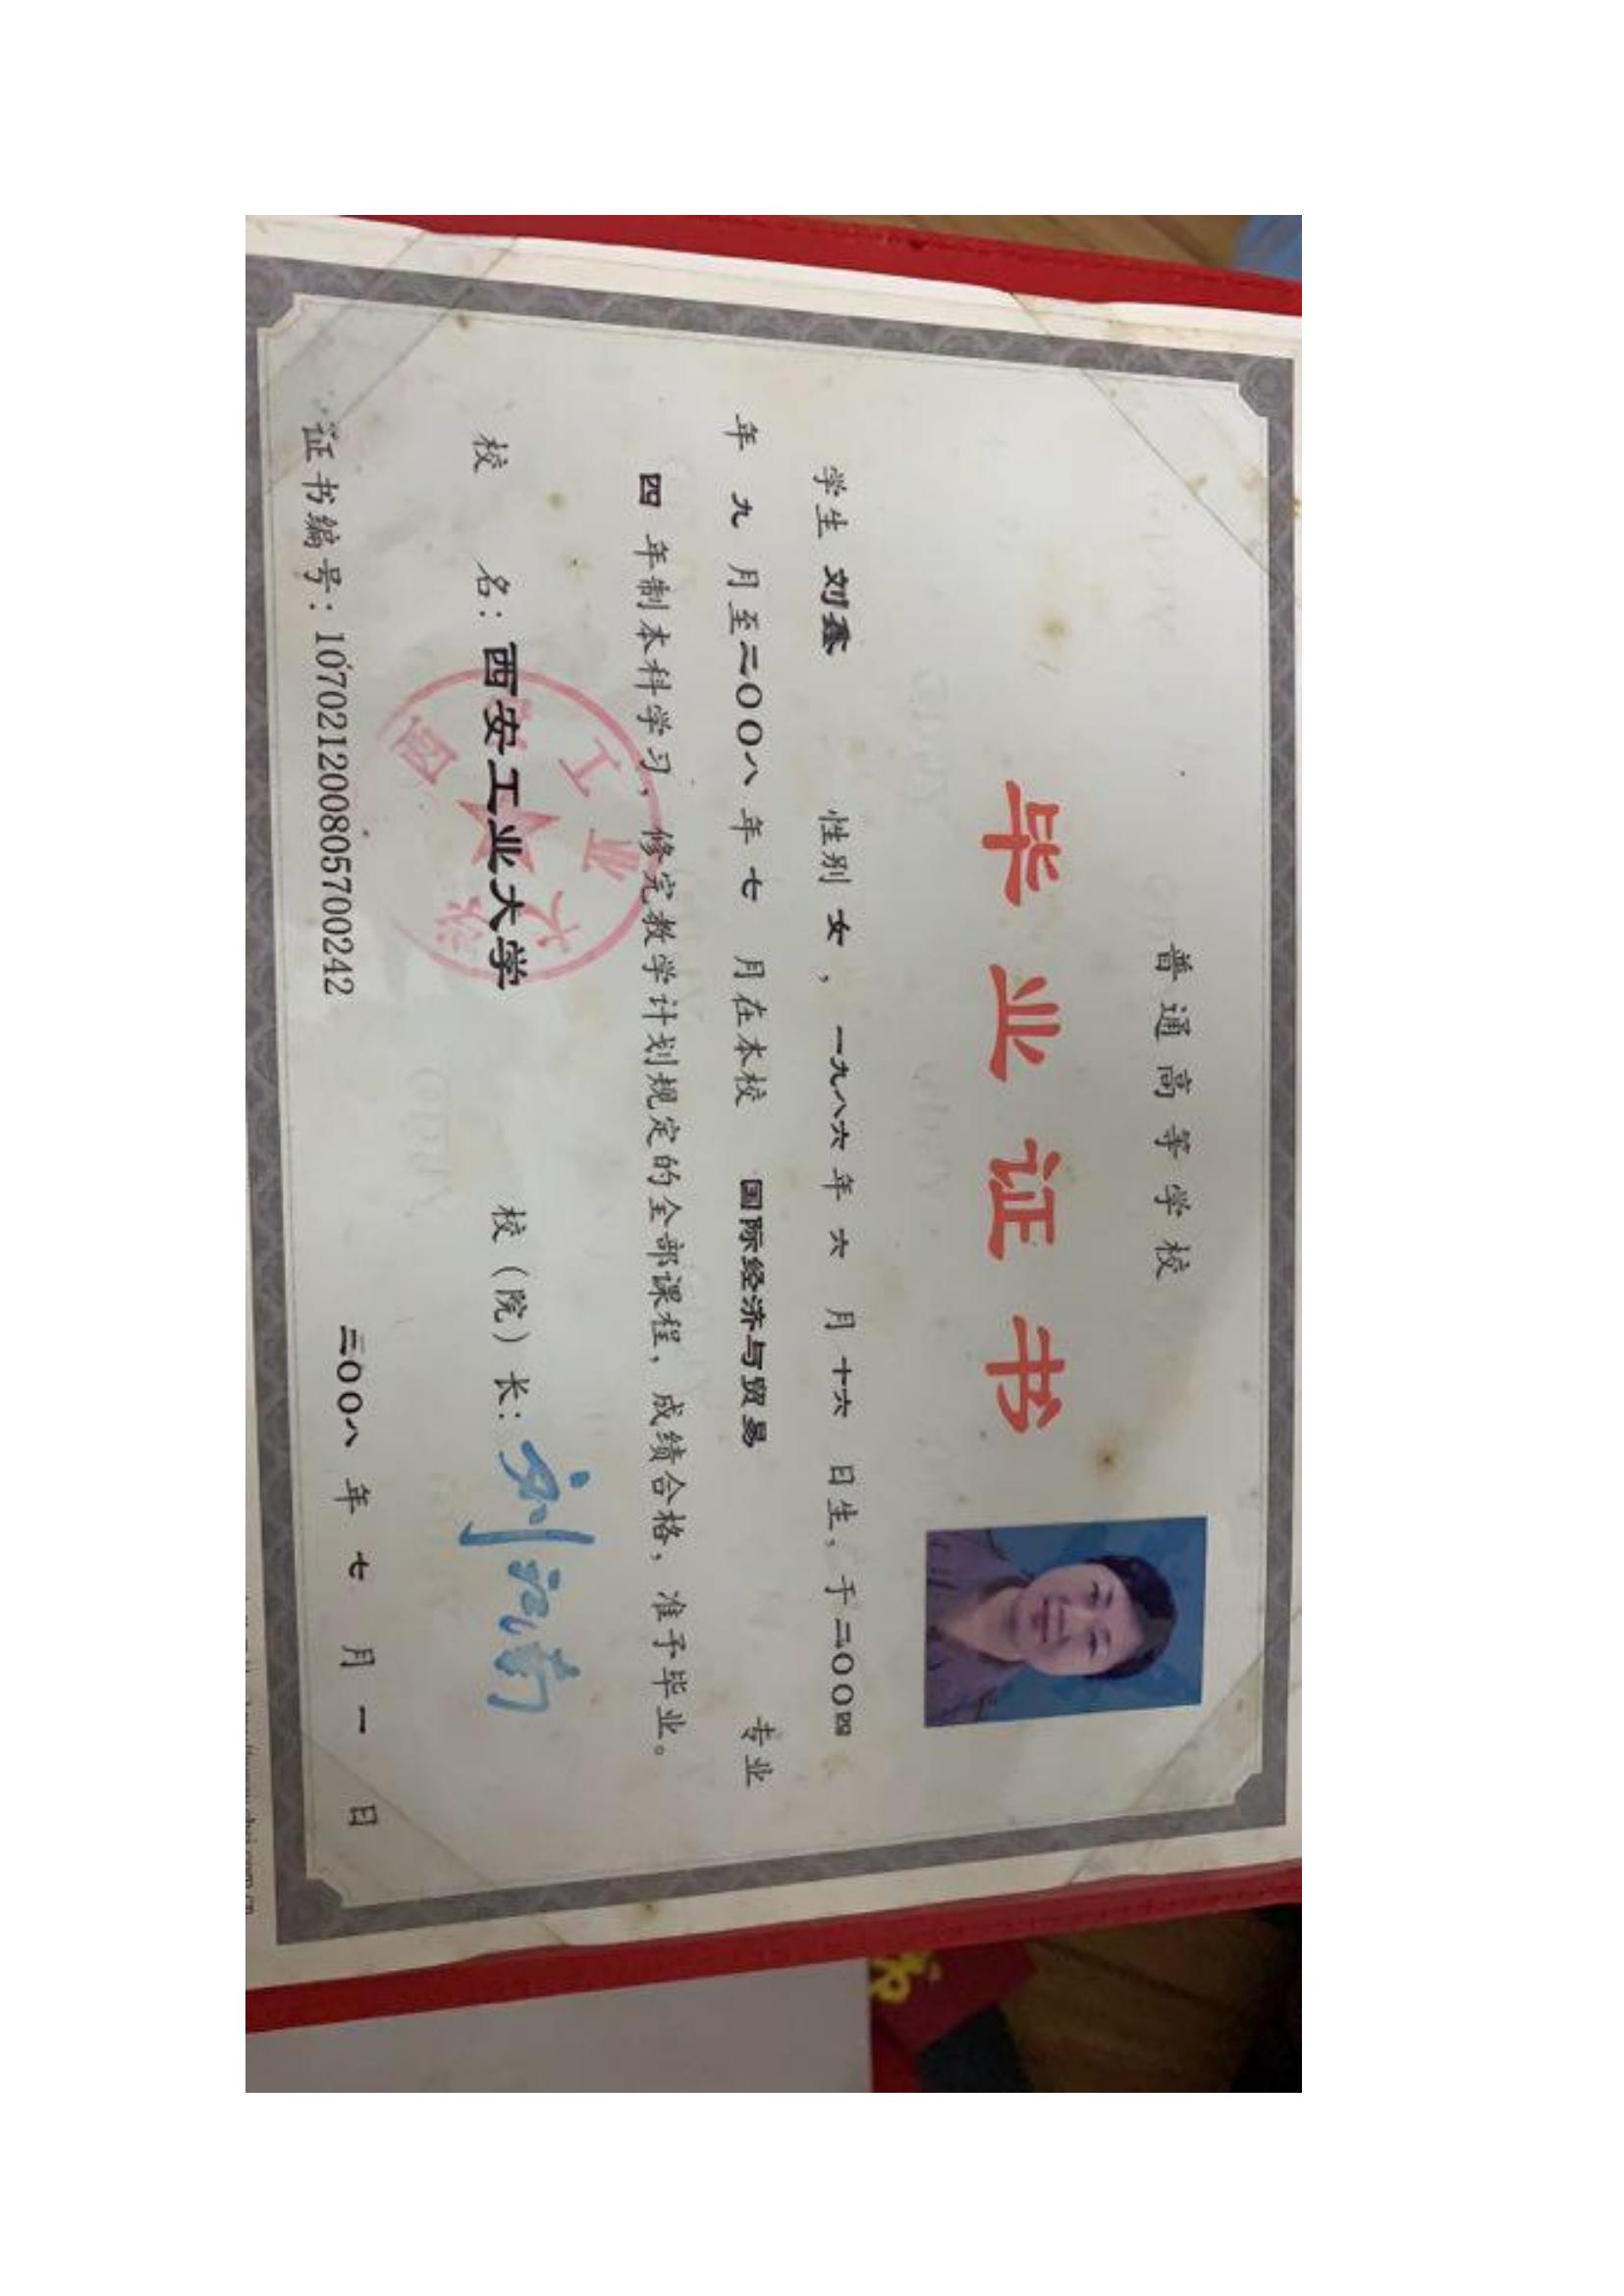 普通高等学校
毕业证书
学生 刘鑫 性别 女，一九八六年 六 月 十六 日生，于二〇〇四
年 九 月至二〇〇八年 七 月在本校 国际经济与贸易 专业
四 年制本科学习，修完教学计划规定的全部课程，成绩合格，准予毕业。
校 名：西安工业大学 校（院）长：
西安工业大学
证书编号：107021200805700242 二〇〇八年 七 月 一 日